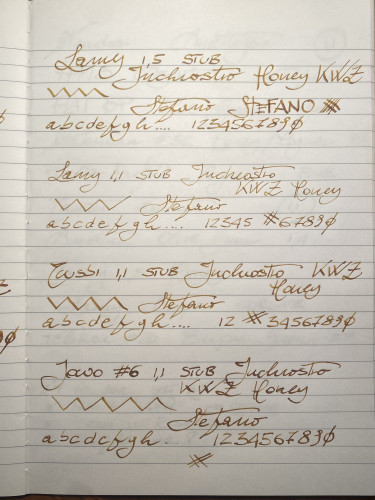 Lamy 1,5 STUB
Inchiostro Honey KWZ
Stefano STEFANO
abcdefgh.... 1234567890
Lamy 1,1 STUB Inchiostro
KWZ Honey
Stefano
abcdefgh.... 12345 67890
1,1 STUB Inchiostro KWZ
Honey
Stefano
abcdefgh.... 12 34567890
Jowo #6 1,1 STUB Inchiostro
KWZ Honey
Stefano
abcdefgh. 1234567890